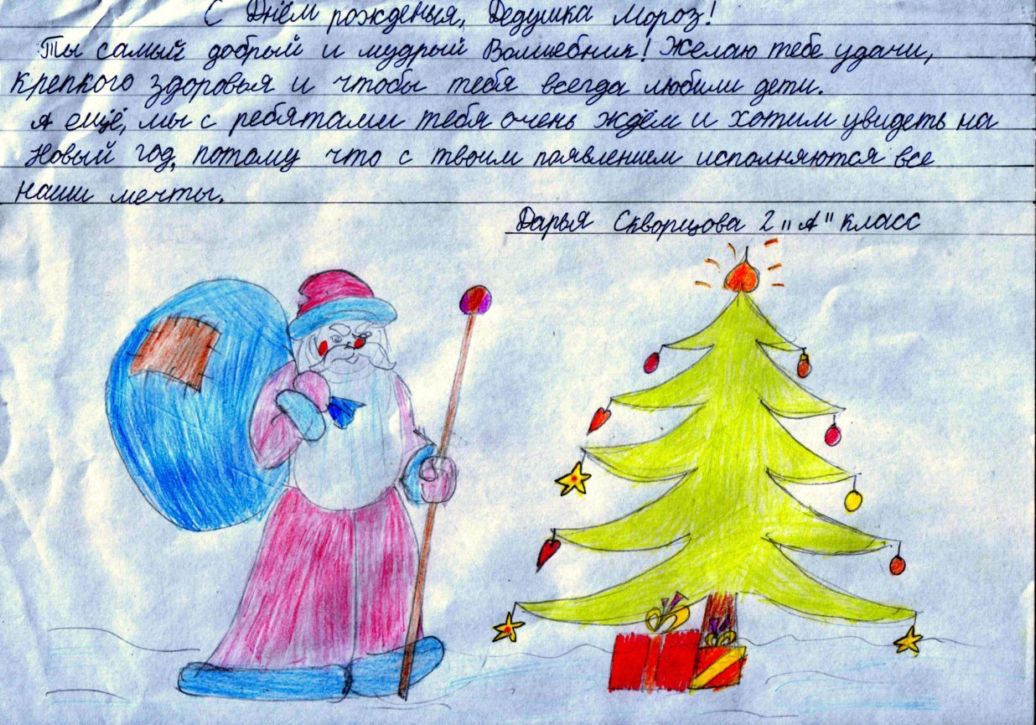 С Днём рожденья, Дедушка Мороз!
Ты самый добрый и мудрый Волшебник! Желаю тебе удачи,
крепкого здоровья и чтобы тебя всегда любили дети.
А ещё, мы с ребятами тебя очень ждём и хотим увидеть на
Новый год, потому что с твоим появлением исполняются все
наши мечты.
Дарья Скворцова 2 "А" класс